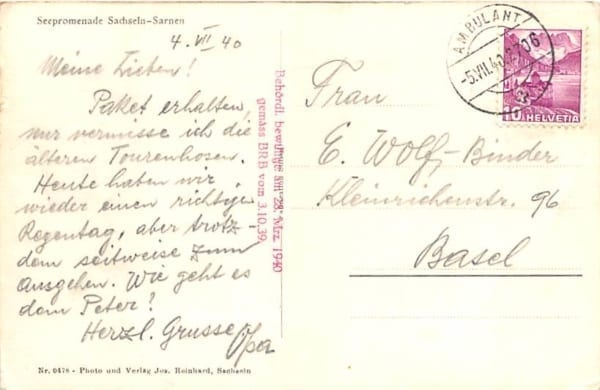 Seepromenade Sachseln-Sarnen
4. VII 40
Meine Lieben!
Paket erhalten,
nur vermisse ich die
älteren Tourenhosen.
Heute haben wir
wieder einen richtigen
Regentag, aber trotz-
dem zeitweise zum
Ausgehen. Wie geht es
dem Peter?
Herzl. Grusse Opa
Nr. 0478 - Photo und Verlag Jos. Reinhard, Sachseln
Behördl. bewilligt am 28. Mrz. 1940
gemäss BRB vom 3.10.39.
AMBULANT
-5.VII.40
2706
10 HELVETIA
Frau
E. Wolf-Binder
Kleinrichenstr. 96
Basel